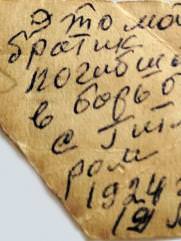 Это мой
братик
погибш
в борьб
с Гитл
ром
1924 г
19